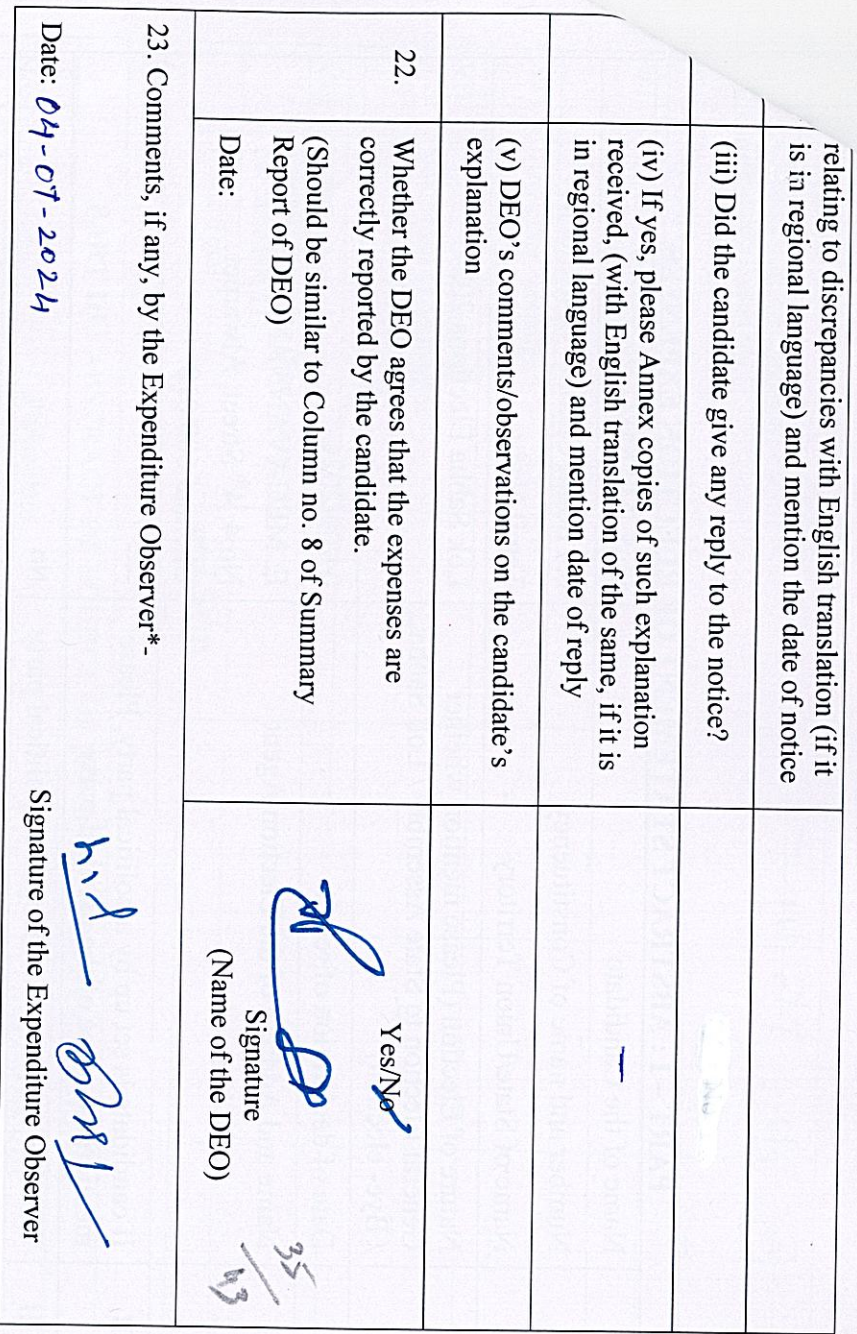 relating to discrepancies with English translation (if it
is in regional language) and mention the date of notice
(iii) Did the candidate give any reply to the notice?
No
(iv) If yes, please Annex copies of such explanation
received, (with English translation of the same, if it is
in regional language) and mention date of reply
–
(v) DEO's comments/observations on the candidate's
explanation
22.
Whether the DEO agrees that the expenses are
correctly reported by the candidate.
(Should be similar to Column no. 8 of Summary
Report of DEO)
Date:
Yes/No
Signature
(Name of the DEO)
35
43
23. Comments, if any, by the Expenditure Observer*-
Date: 04-07-2024
Signature of the Expenditure Observer